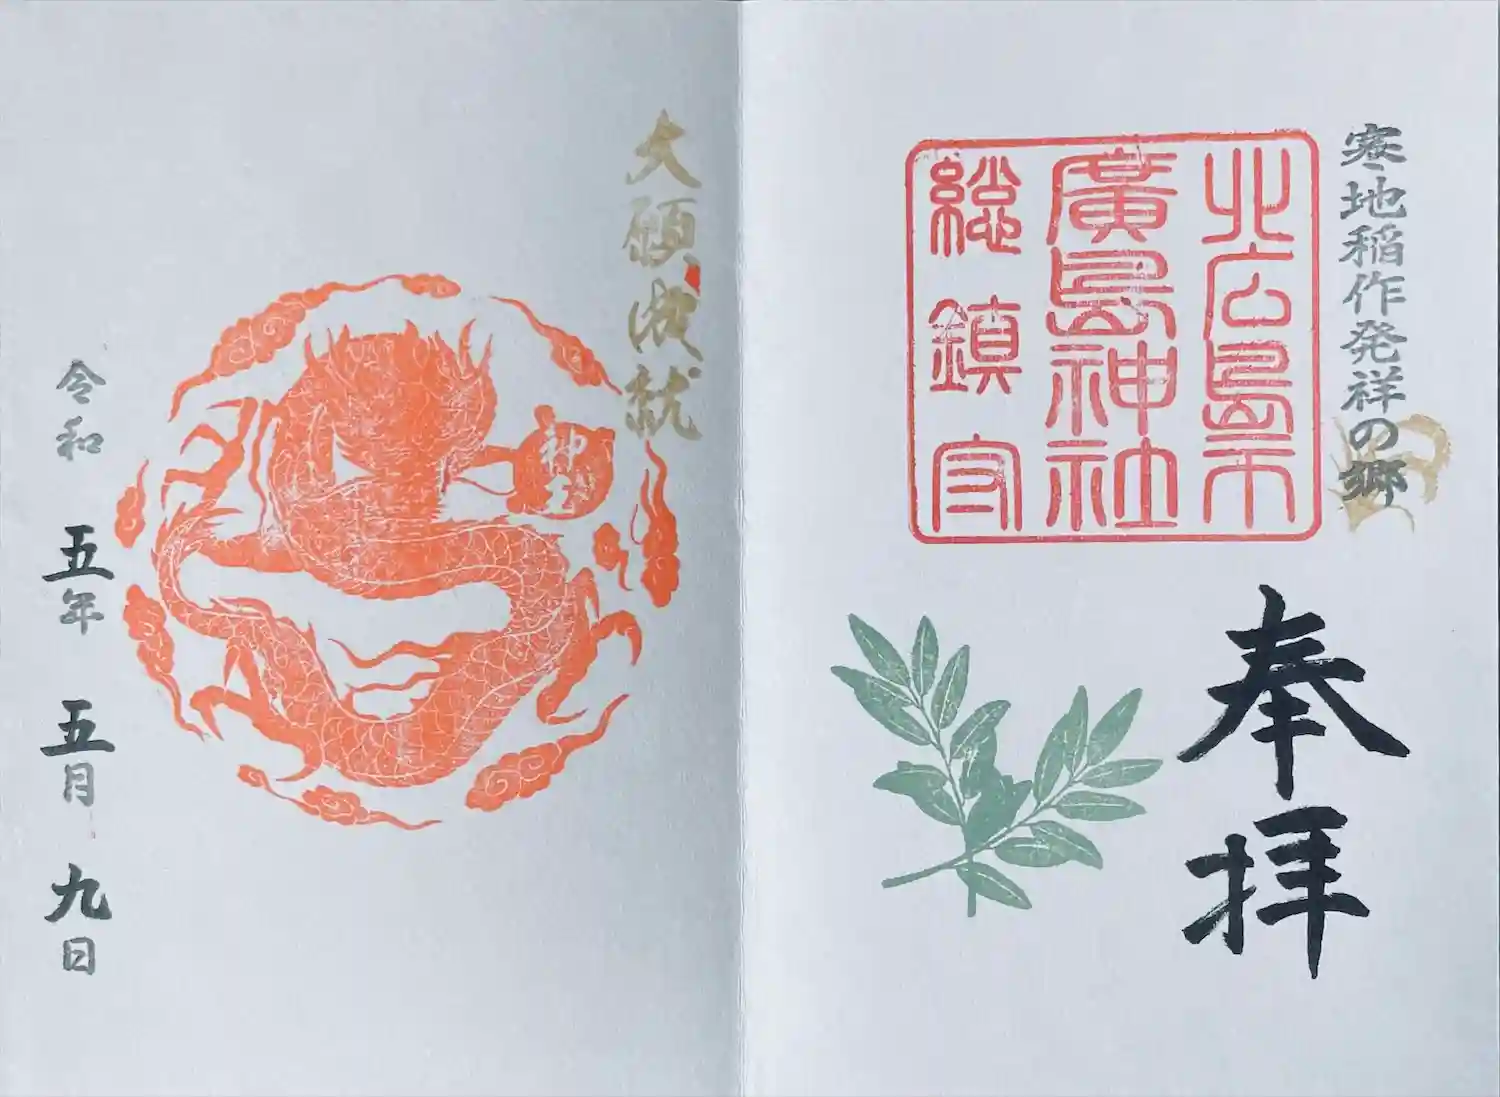 寒地稲作発祥の郷
北広島市
廣島神社
総鎮守
奉拝
大願成就
神玉
令和五年五月九日